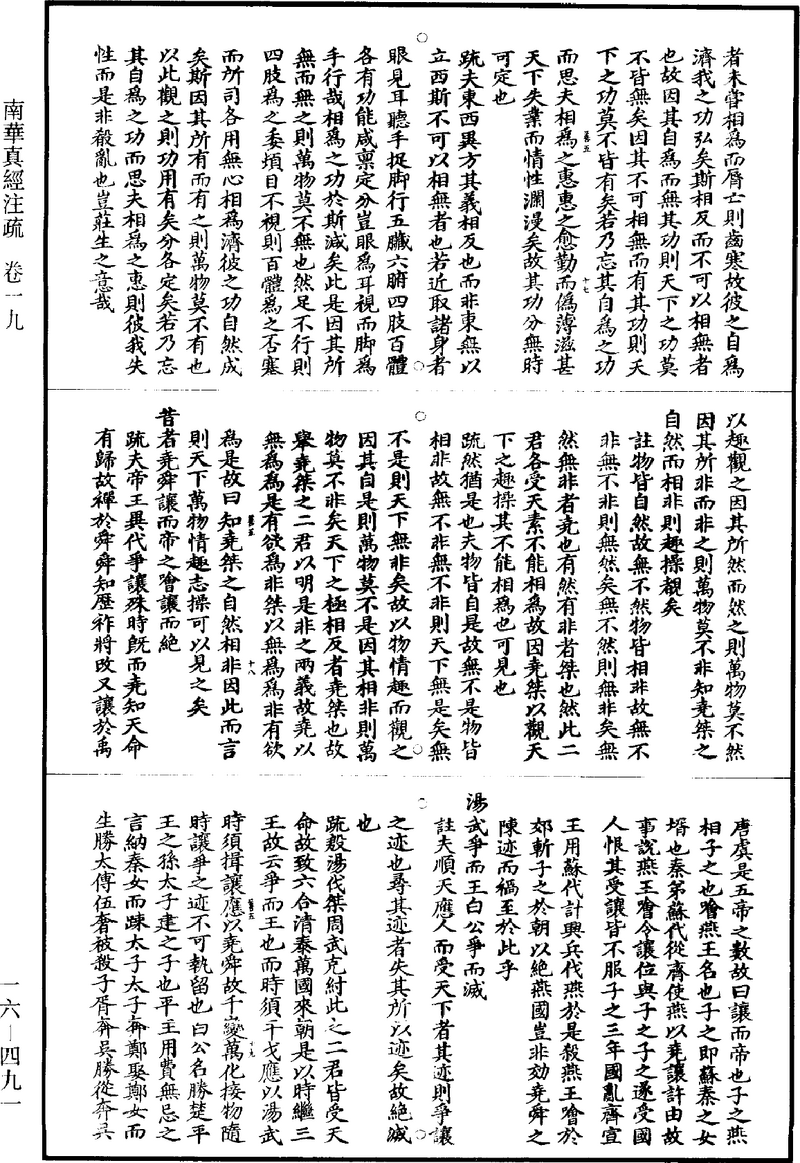 南華真經注疏　卷一九
一六—四九一
者未嘗相爲而脣亡則齒寒故彼之自爲
濟我之功弘矣斯相反而不可以相無者
也故因其自爲而無其功則天下之功莫
不皆無矣因其不可相無而有其功則天
下之功莫不皆有矣若乃忘其自爲之功
而思夫相爲之惠惠之愈勤而僞薄滋甚
天下失業而情性瀾漫矣故其功分無時
可定也
疏夫東西異方其義相反也而非東無以
立西斯不可以相無者也若近取諸身者
眼見耳聽手捉脚行五臟六腑四肢百體
各有功能咸禀定分豈眼爲耳視而脚爲
手行哉相爲之功於斯滅矣此是因其所
無而無之則萬物莫不無也然足不行則
四肢爲之委頓目不視則百體爲之否塞
而所司各用無心相爲濟彼之功自然成
矣斯因其所有而有之則萬物莫不有也
以此觀之則功用有矣分各定矣若乃忘
其自爲之功而思夫相爲之惠則彼我失
性而是非殽亂也豈莊生之意哉
以趣觀之因其所然而然之則萬物莫不然
因其所非而非之則萬物莫不非知堯桀之
自然而相非則趣操覩矣
註物皆自然故無不然物皆相非故無不
非無不非則無然矣無不然則無非矣無
然無非者堯也有然有非者桀也然此二
君各受天素不能相爲故因堯桀以觀天
下之趣操其不能相爲也可見也
疏然猶是也夫物皆自是故無不是物皆
相非故無不非無不非則天下無是矣無
不是則天下無非矣故以物情趣而觀之
因其自是則萬物莫不是因其相非則萬
物莫不非矣天下之極相反者堯桀也故
舉堯桀之二君以明是非之兩義故堯以
無爲爲是有欲爲非桀以無爲爲非有欲
爲是故曰知堯桀之自然相非因此而言
則天下萬物情趣志操可以見之矣
昔者堯舜讓而帝之噲讓而絶
疏夫帝王異代爭讓殊時旣而堯知天命
有歸故禪於舜舜知歷祚將改又讓於禹
唐虞是五帝之數故曰讓而帝也子之燕
相子之也噲燕王名也子之即蘇秦之女
壻也秦弟蘇代從齊使燕以堯讓許由故
事說燕王噲令讓位與子之子之遂受國
人恨其受讓皆不服子之三年國亂齊宣
王用蘇代計興兵伐燕於是殺燕王噲於
郊斬子之於朝以絶燕國豈非効堯舜之
陳迹而禍至於此乎
湯武爭而王白公爭而滅
註夫順天應人而受天下者其迹則爭讓
之迹也尋其迹者失其所以迹矣故絶滅
也
疏殷湯伐桀周武克紂此之二君皆受天
命故致六合清泰萬國來朝是以時繼三
王故云爭而王也而時須干戈應以湯武
時須揖讓應以堯舜故千變萬化接物隨
時讓爭之迹不可執留也白公名勝楚平
王之孫太子建之子也平王用費無忌之
言納秦女而踈太子太子奔鄭娶鄭女而
生勝太傅伍奢被殺子胥奔吳勝從奔吳